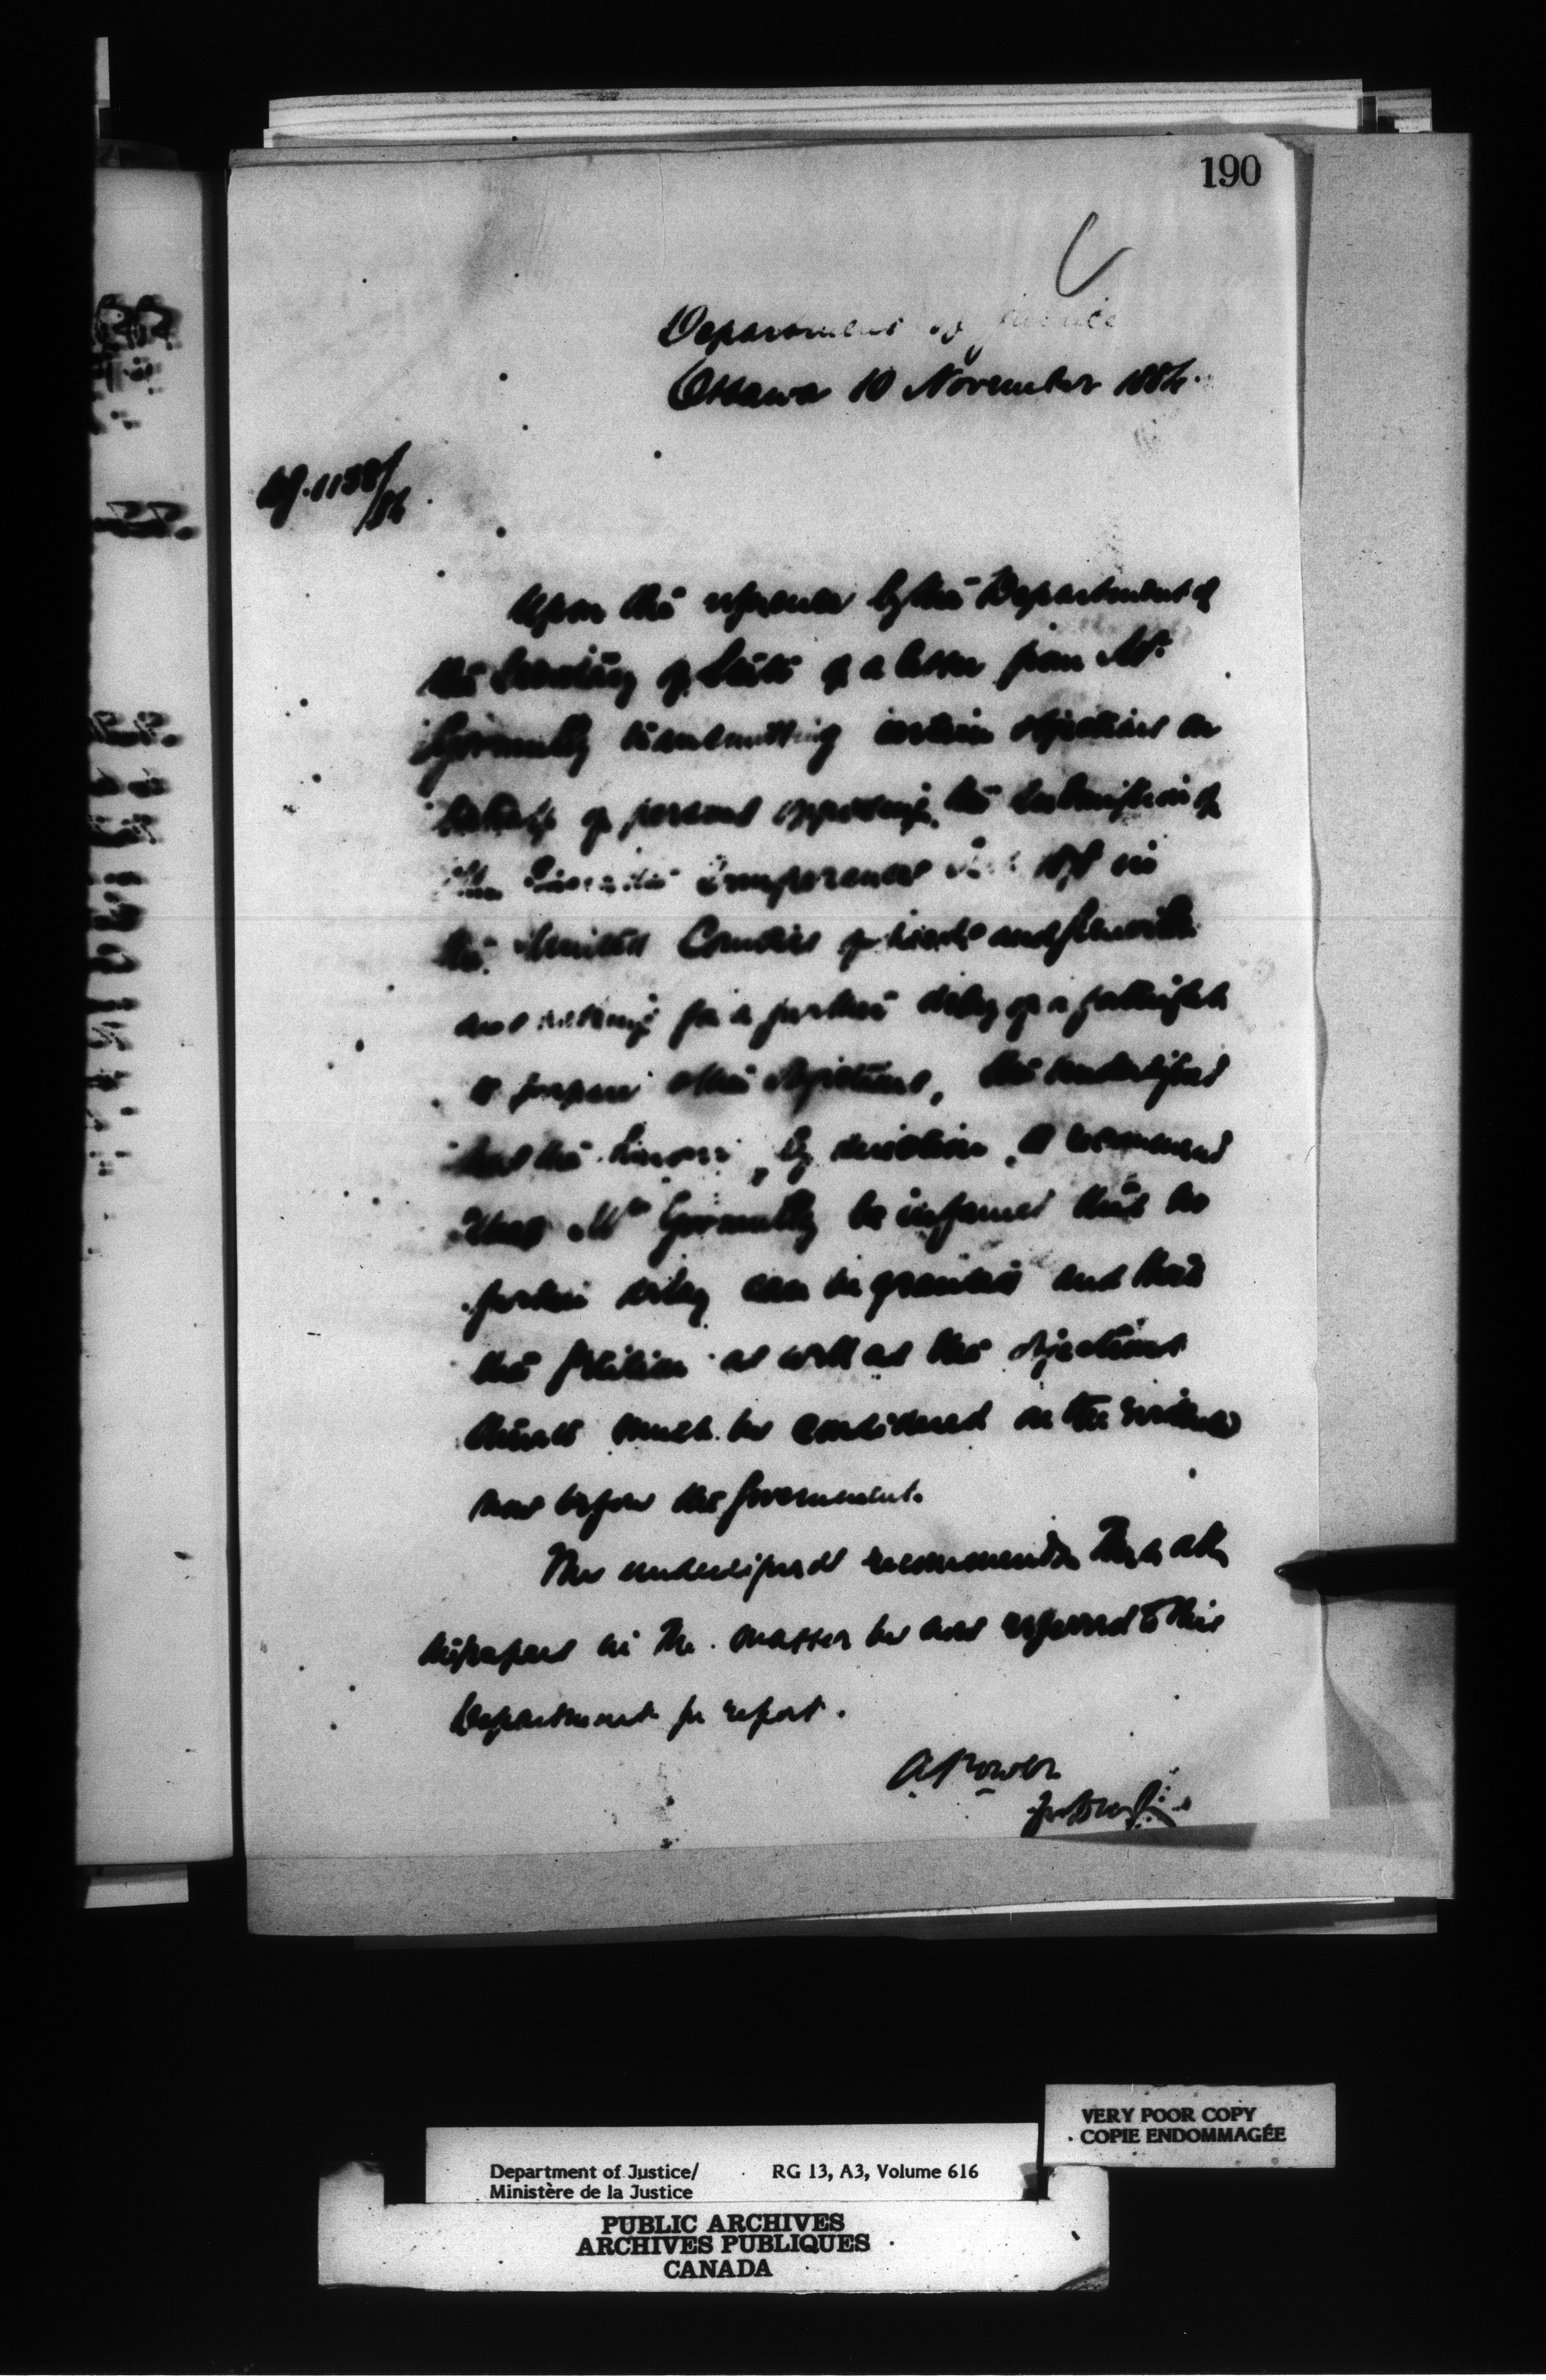 190
Department of Justice
Ottawa 10 November 1884.
1138/84
Upon the reference by the Department of
the Secretary of State of a letter from Mr
Gormully transmitting certain objections on
behalf of persons opposing the submission of
the Canada Temperance Act 1878 in
the United Counties of Leeds and Grenville
and asking for a further delay of a fortnight
to prepare other objections, the undersigned
has the honor, by direction, to recommend
that Mr Gormully be informed that no
further delay can be granted and that
the petition as well as the objections
thereto must be considered on the evidence
now before the Government.
The undersigned recommends that all
the papers in the matter be now referred to this
Department for report.
A Power
VERY POOR COPY
COPIE ENDOMMAGÉE
Department of Justice/ RG 13, A3, Volume 616
Ministère de la Justice
PUBLIC ARCHIVES
ARCHIVES PUBLIQUES
CANADA